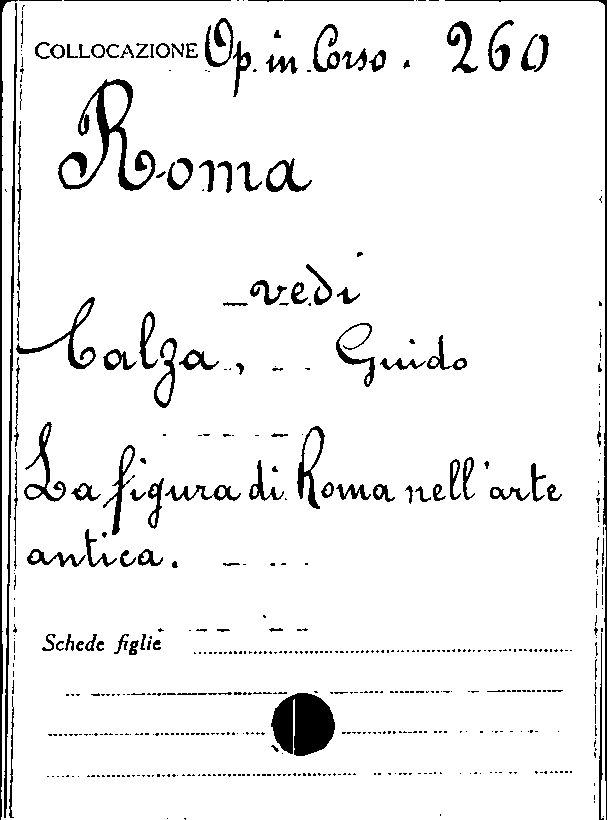 COLLOCAZIONE Op. in Corso. 260
Roma
vedi
Calza, Guido
La figura di Roma nell'arte
antica.
Schede figlie